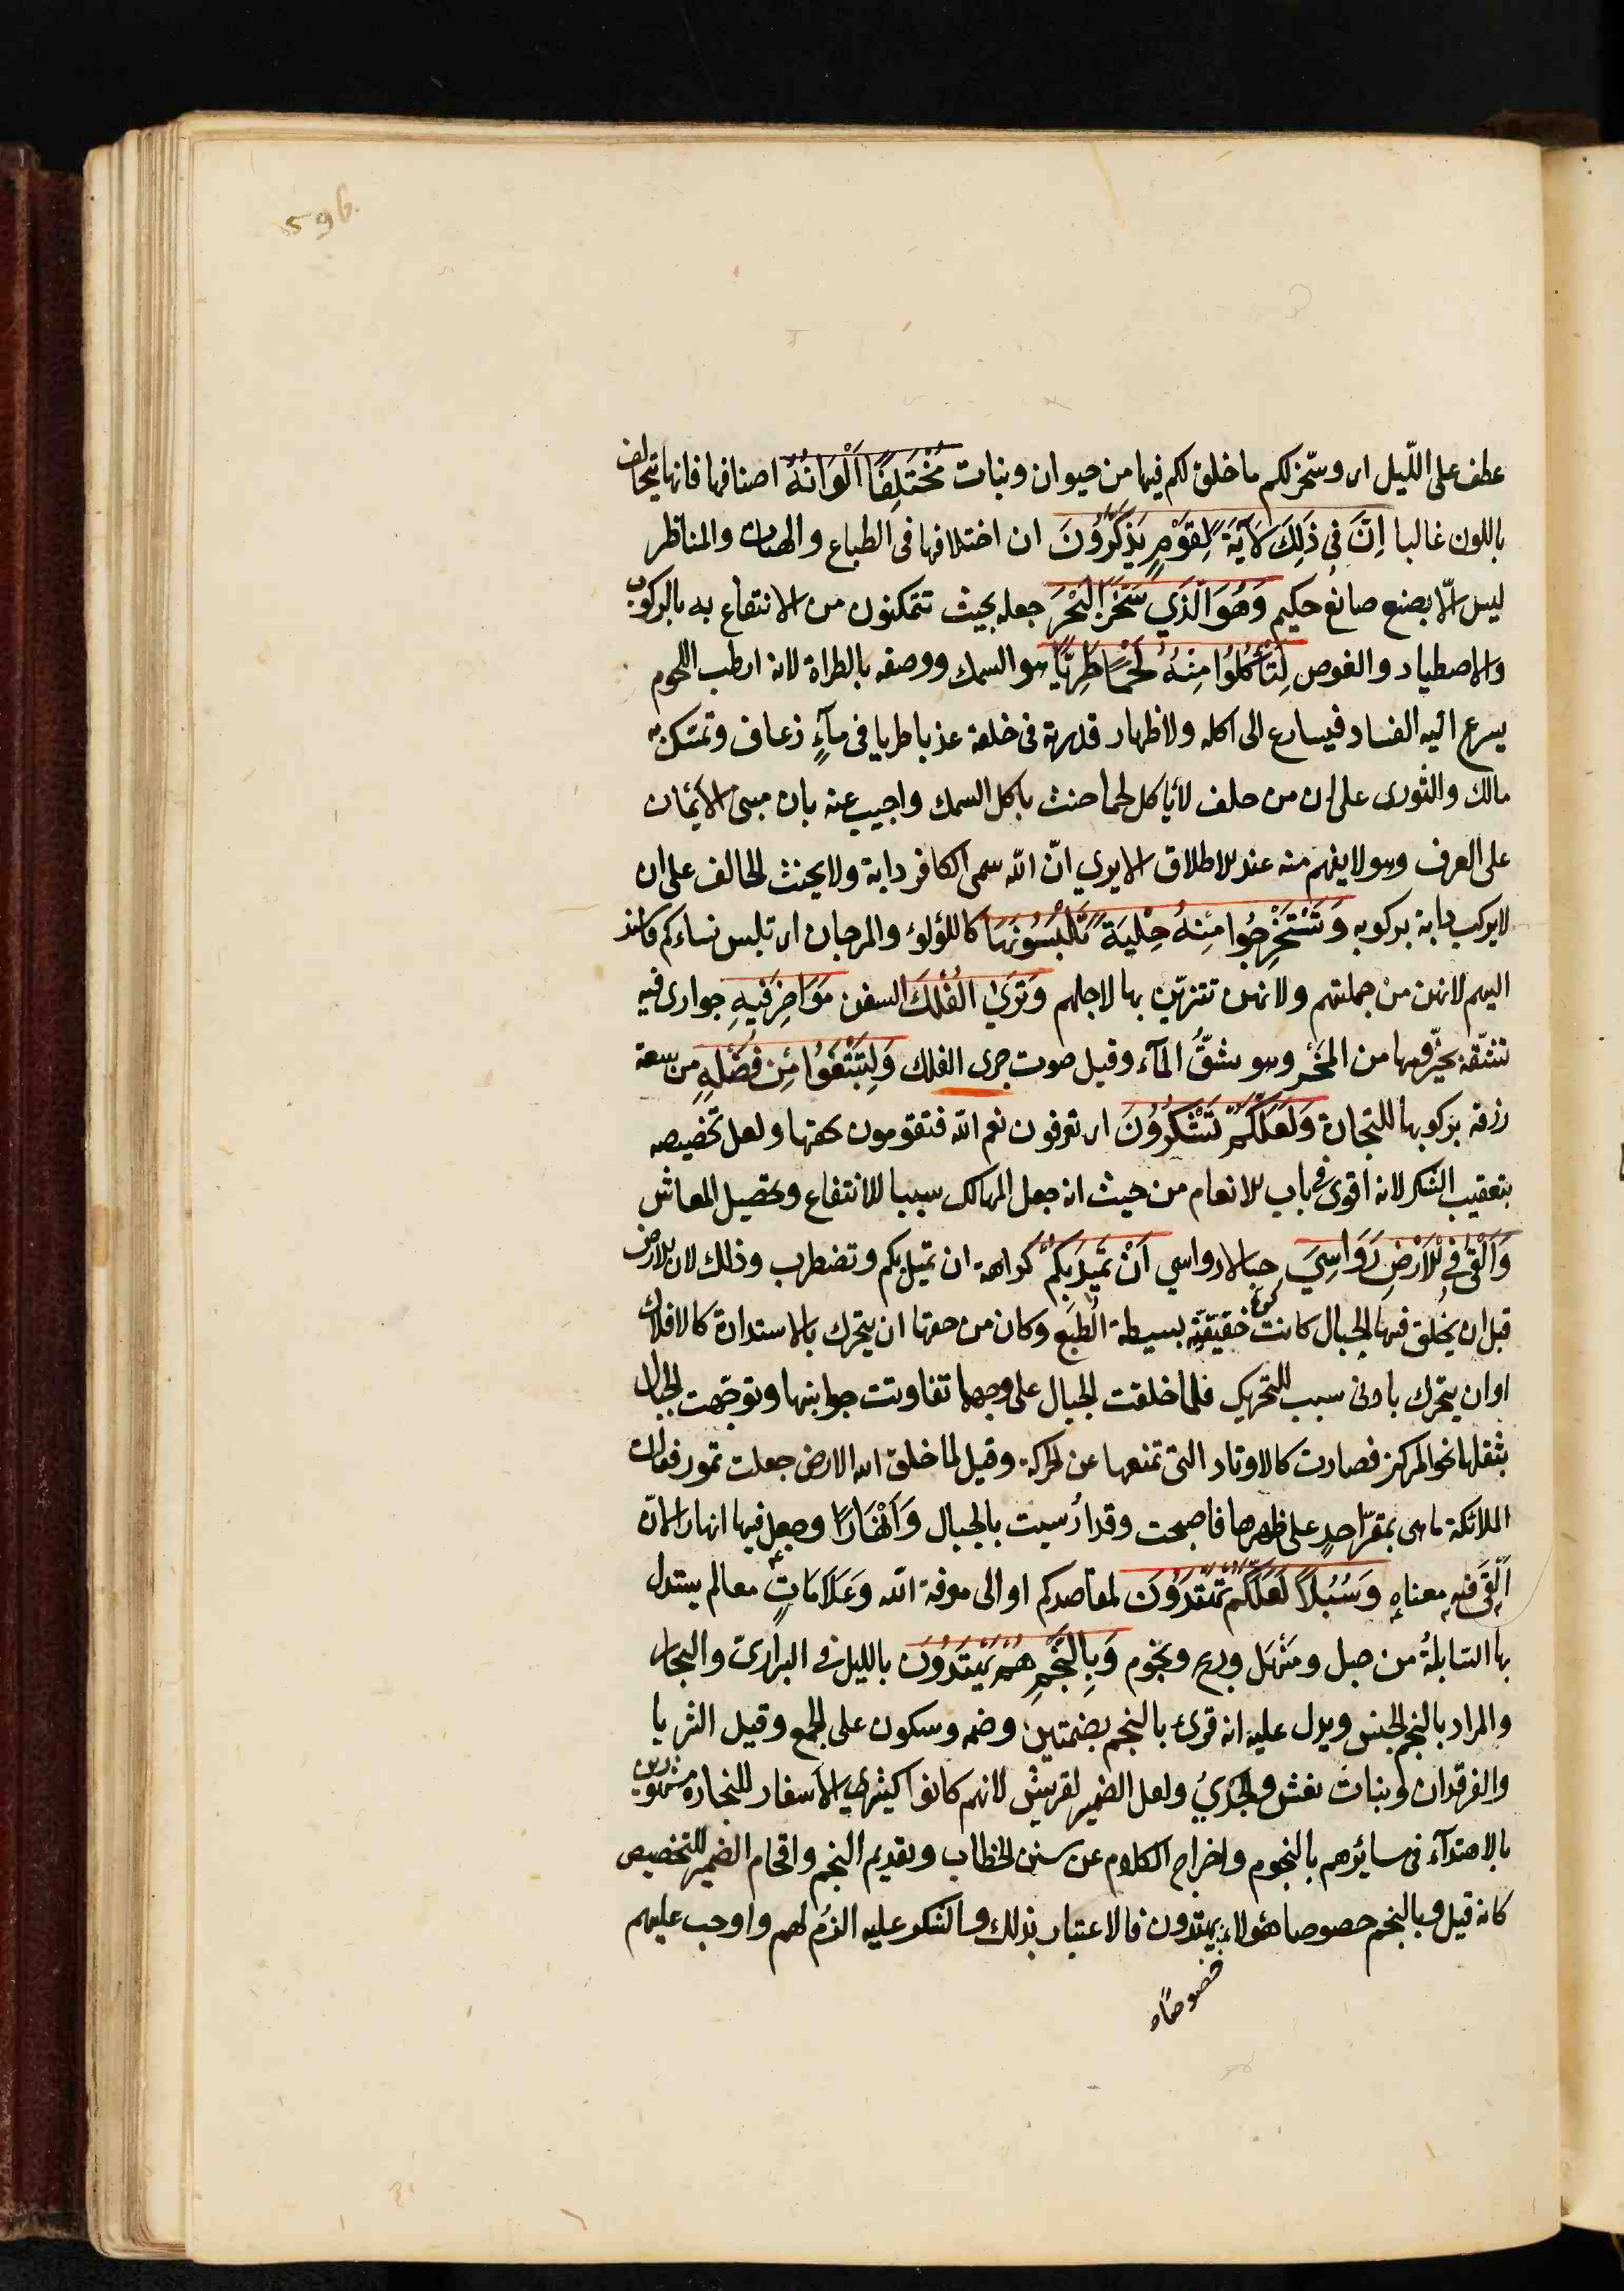 596
عطف على اللّيل اى وسخّر لكم ما خلق لكم فيها من حيوان ونبات مُخْتَلِفًا اَلْوَانُهُ اصنافها فانها تتخالف
باللون غالبا اِنَّ فِي ذَلِكَ لَآيَةً لِقَوْمٍ يَذَّكَّرُونَ ان اختلافها فى الطباع والهيئات والمناظر
ليس الّا بصنع صانع حكيم وَهُوَ الَّذِي سَخَّرَ الْبَحْرَ جعله بحيث تتمكنون من الانتفاع به بالركوب
والاصطياد والغوص لِتَأْكُلُوا مِنْهُ لَحْمًا طَرِيًّا هو السمك ووصفه بالطراة لانه ارطب اللحوم
يسرع اليه الفساد فيسارع الى اكله ولاظهار قدرته فى خلقه عذبا طريا فى مآءٍ زعاف وتمسّك به
مالك والثورى على ان من حلف لا يأكل لحما حنث باكل السمك واجيب عنه بان مبنى الايمان
على العرف وهو لا يفهم منه عند الاطلاق الا يري انّ الله سمى الكافر دابة ولا يحنث الحالف على ان
لا يركب دابة بركوبه وَتَسْتَخْرِجُوا مِنْهُ حِلْيَةً تَلْبَسُونَهَا كاللؤلوء والمرجان اى تلبس نساءكم فاسند
اليهم لانهن من جملتهم ولانهن تتزيّن بها لاجلهم وَتَرَي الْفُلْكَ السفن مَوَاخِرَ فِيهِ جوارى فيه
تشقه بحيزومها من المَخْر وهو شقُّ المآء وقيل صوت جرى الفلك وَلِتَبْتَغُوا مِن فَضْلِهِ من سعة
رزقه بركوبها للتجارة وَلَعَلَّكُمْ تَشْكُرُونَ اى تعرفون نعم الله فتقومون بحقها ولعل تخصيصه
بتعقيب الشكر لانه اقوى فى باب الانعام من حيث انه جعل المهالك سببا للانتفاع وتحصيل المعاش
وَاَلْقَى فِي الْاَرْضِ رَوَاسِيَ جبالا رواسي اَنْ تَمِيدَ بِكُمْ كراهة ان تميل بكم وتضطرب وذلك لان الارض
قبل ان يخلق فيها الجبال كانت كرة خفيفة بسيطة الطبع وكان من حقها ان يتحرك بالاستدارة كالافلاك
او ان يتحرك بادنى سبب للتحريك فلما خلقت الجبال على وجهها تفاوتت جوانبها وتوجّهت الجبال
بثقلها نحو المركز فصارت كالاوتاد التى تمنعها عن الحركة وقيل لما خلق الله الارض جعلت تمور فقالت
الملائكة ما هى بمقرّ احدٍ على ظهرها فاصبحت وقد اُرسيت بالجبال وَاَنْهَارًا وجعل فيها انهارا لانّ
اَلْقَى فيه معناه وَسُبُلًا لَعَلَّكُمْ تَهْتَدُونَ لمقاصدكم او الى معرفة الله وَعَلَامَاتٍ معالم يستدل
بها السّابلةُ من جبل ومنهل وريح ونجوم وَبِالنَّجْمِ هُمْ يَهْتَدُونَ بالليل فى البرارى والبحار
والمراد بالنجم الجنس ويدل عليه انه قرئ بالنجم بضمتين وضمه وسكون على الجمع وقيل الثريا
والفرقدان وبنات نعش والجدي ولعل الضمير لقريش لانهم كانوا كثيري الاسفار للتجارة مشهورين
بالاهتدآء فى مسائرهم بالنجوم واخراج الكلام عن سنن الخطاب وتقديم النجم واقحام الضمير للتخصيص
كانه قيل وبالنجم خصوصا هؤلاء يهتدون فالاعتبار بذلك والشكر عليه الزم لهم واوجب عليهم
خصوصًا